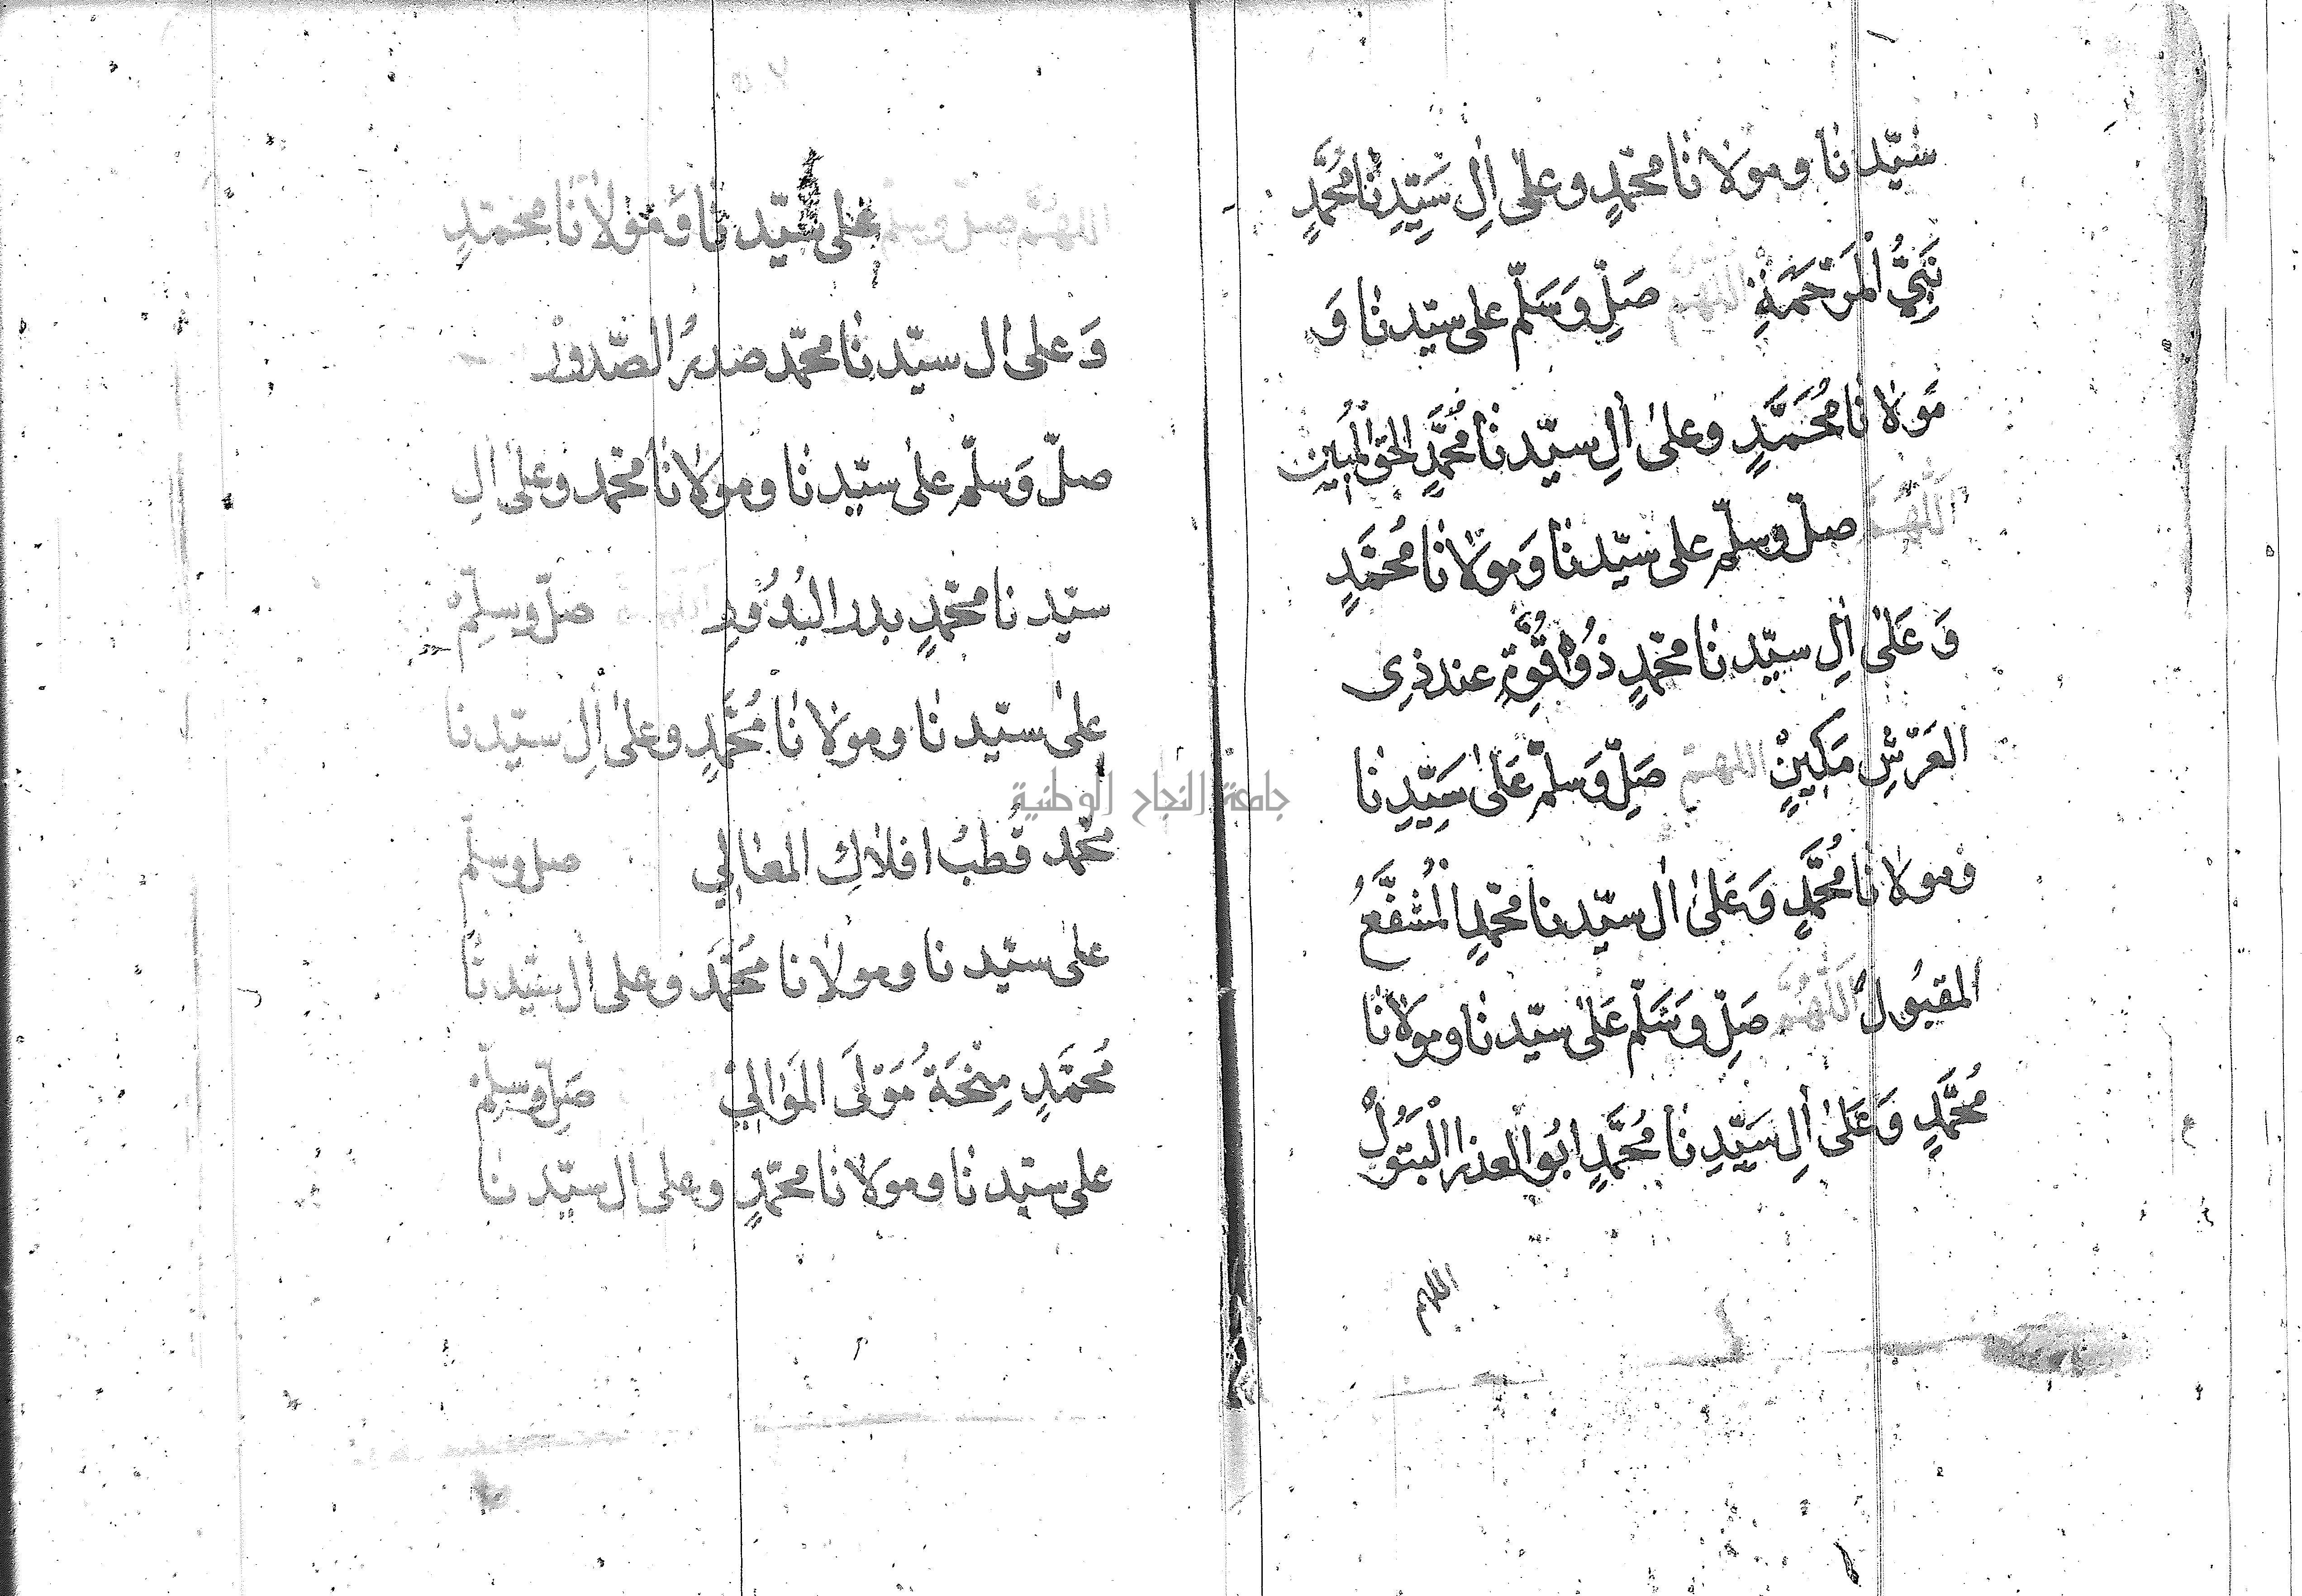 سيّدنا ومولانا محمّدٍ وعلى اٰلِ سَيِّدِنا مُحَمَّدٍ
نَبِيُّ الْمَرْحَمَةِ اللهم صَلِّ وَسَلّم على سيّدنا وَ
مَولانا مُحَمَّدٍ وعلىٰ اٰلِ سيّدنا مُحَمَّدٍ الحق الْمُبِين
اَللّٰهُمَّ صلّ وسلّم على سيّدنا وَمَولانا مُحَمَّدٍ
وَعَلىٰ اٰلِ سيّدنا محمّدٍ ذُوالْقُوَّةِ عند ذِى
العَرْشِ مَكِيْنٍ اللهم صَلِّ وَسَلِّمْ عَلىٰ سَيِّدِنا
ومولانا مُحَمَّدٍ وَعَلىٰ اٰل سيّدنا محمّدٍ الْمُشَفَّعُ
المقبُول اَللّٰهُمَّ صَلِّ وَسَلّم عَلىٰ سيّدنا ومَولانا
مُحَمَّدٍ وَعَلىٰ اٰلِ سَيِّدِنا مُحَمَّدٍ ابُو العذرا البَتُولْ
اللهم
على سيّدنا وَمَوْلانا محمّدٍ
وَعلى اٰل سيّدنا محمّد صدرُ الصّدور
صلّ وَسلّم علىٰ سيّدنا ومولانا محمّد وعلى اٰلِ
سيّدنا محمّدٍ بدر البُدُورِ صلّ وسلِّمْ
علىٰ سيّدنا ومولانا مُحَمَّدٍ وعلىٰ اٰلِ سيّدنا
محمّد قُطبُ افلاكِ المعَالِي صل وسلّم
علىٰ سيّدنا ومولانا مُحَمَّد وعلى اٰل سيّدنا
مُحمَّدٍ مِنْحَةُ مَوْلَى المَوَالِيْ صَلِّ وسلِّمْ
على سيّدنا ومولانا محمّدٍ وعلى اٰل سيّدنا
جامعة النجاح الوطنية